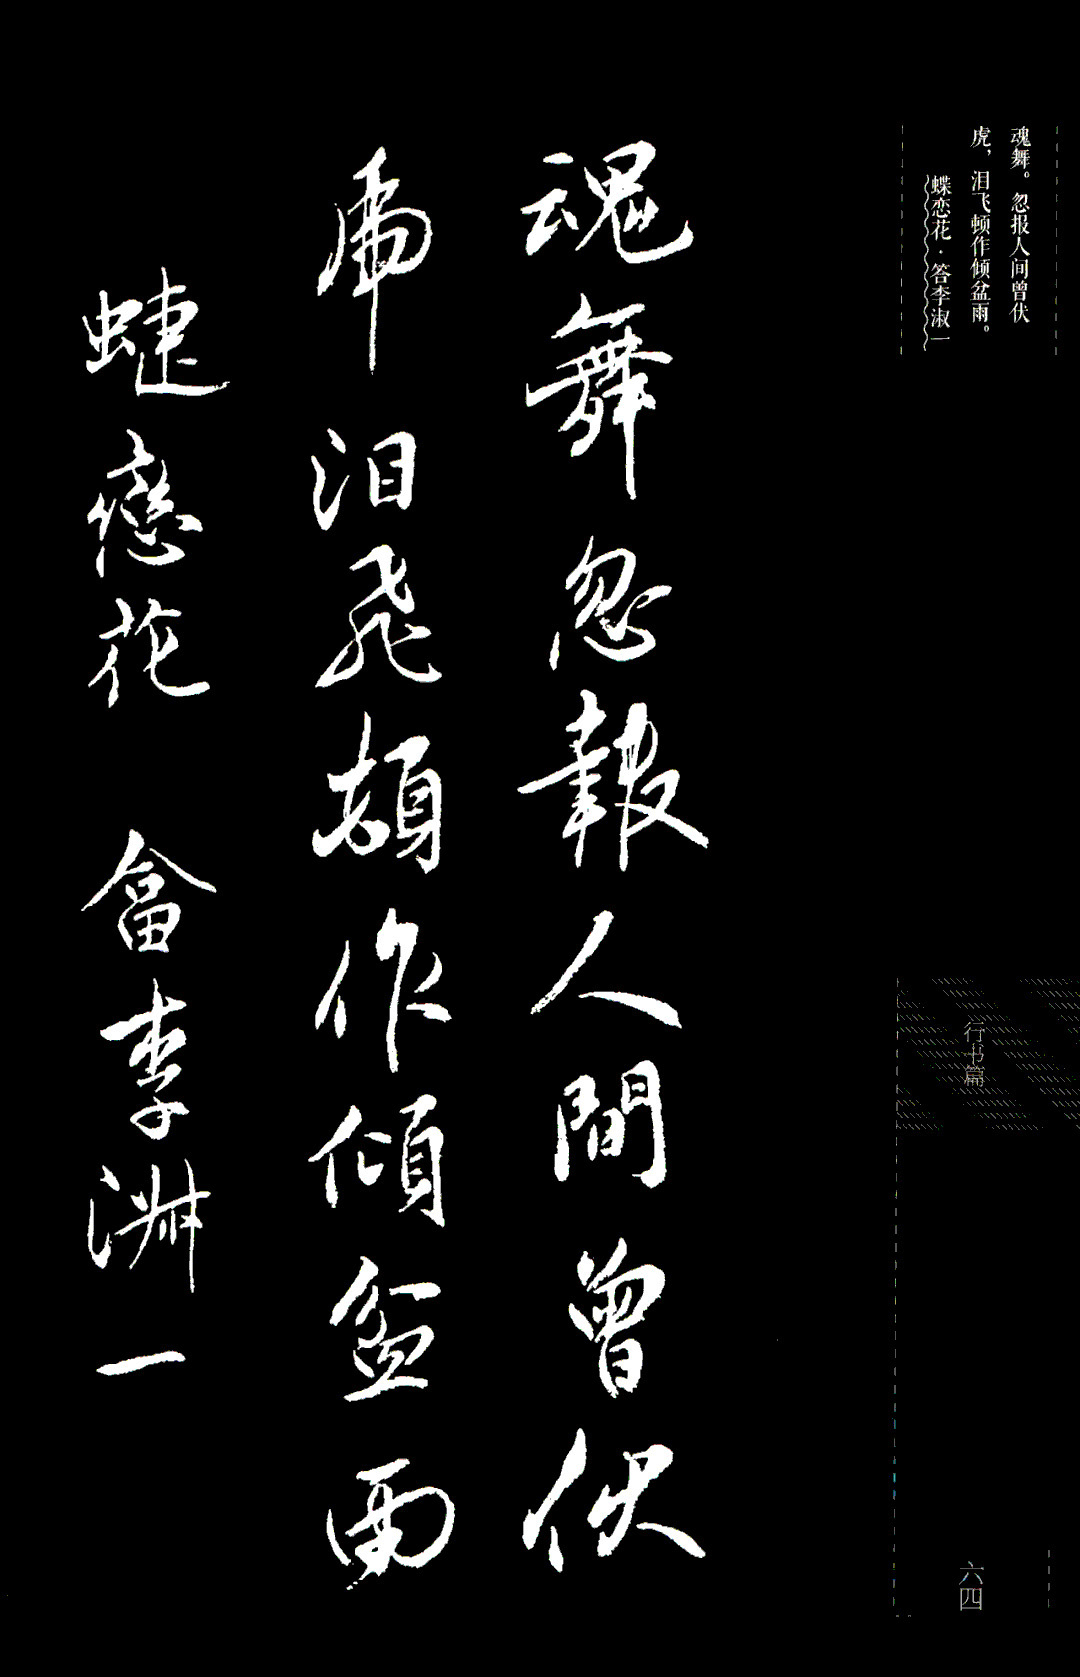 魂舞。忽报人间曾伏
虎，泪飞顿作倾盆雨。
蝶恋花·答李淑一
魂舞忽報人間曾伏
虎泪飛頓作傾盆雨
蝶戀花 畣李淑一
行书篇
六四